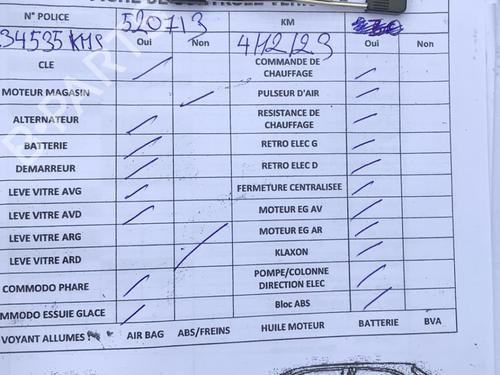 N° POLICE 520713 KM
34535 KMS Oui Non 4/12/23 Oui Non
CLE COMMANDE DE CHAUFFAGE
MOTEUR MAGASIN PULSEUR D'AIR
ALTERNATEUR RESISTANCE DE CHAUFFAGE
BATTERIE RETRO ELEC G
DEMARREUR RETRO ELEC D
LEVE VITRE AVG FERMETURE CENTRALISEE
LEVE VITRE AVD MOTEUR EG AV
LEVE VITRE ARG MOTEUR EG AR
LEVE VITRE ARD KLAXON
COMMODO PHARE POMPE/COLONNE DIRECTION ELEC
MMODO ESSUIE GLACE Bloc ABS
VOYANT ALLUMES : AIR BAG ABS/FREINS HUILE MOTEUR BATTERIE BVA